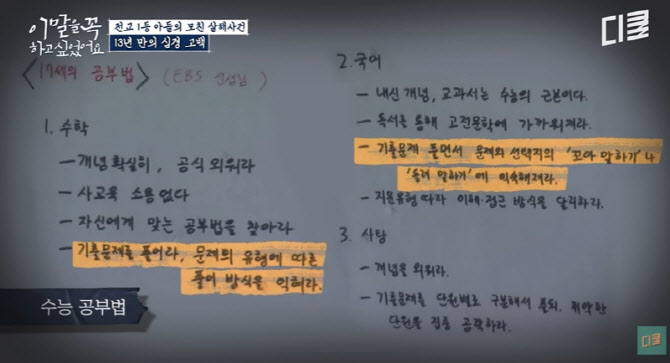 이말을 꼭
하고 싶었어요
전교 1등 아들의 모친 살해사건
13년 만의 심경 고백
디글
<17세의 공부법> (EBS 선생님)
1. 수학
- 개념 확실히, 공식 외워라
- 사교육 소용없다
- 자신에게 맞는 공부법을 찾아라
- 기출문제를 풀어라, 문제의 유형에 따른
풀이 방식을 익혀라.
2. 국어
- 내신 개념, 교과서는 수능의 근본이다.
- 독서를 통해 고전문학에 가까워져라.
- 기출문제 풀면서 문제와 선택지의 '꼬아 말하기'나
'돌려 말하기'에 익숙해져라.
- 지문유형 따라 이해·접근 방식을 달리하라.
3. 사탐
- 개념을 외워라.
- 기출문제를 단원별로 구분해서 풀되, 취약한
단원을 집중 공략하라.
수능 공부법
디글